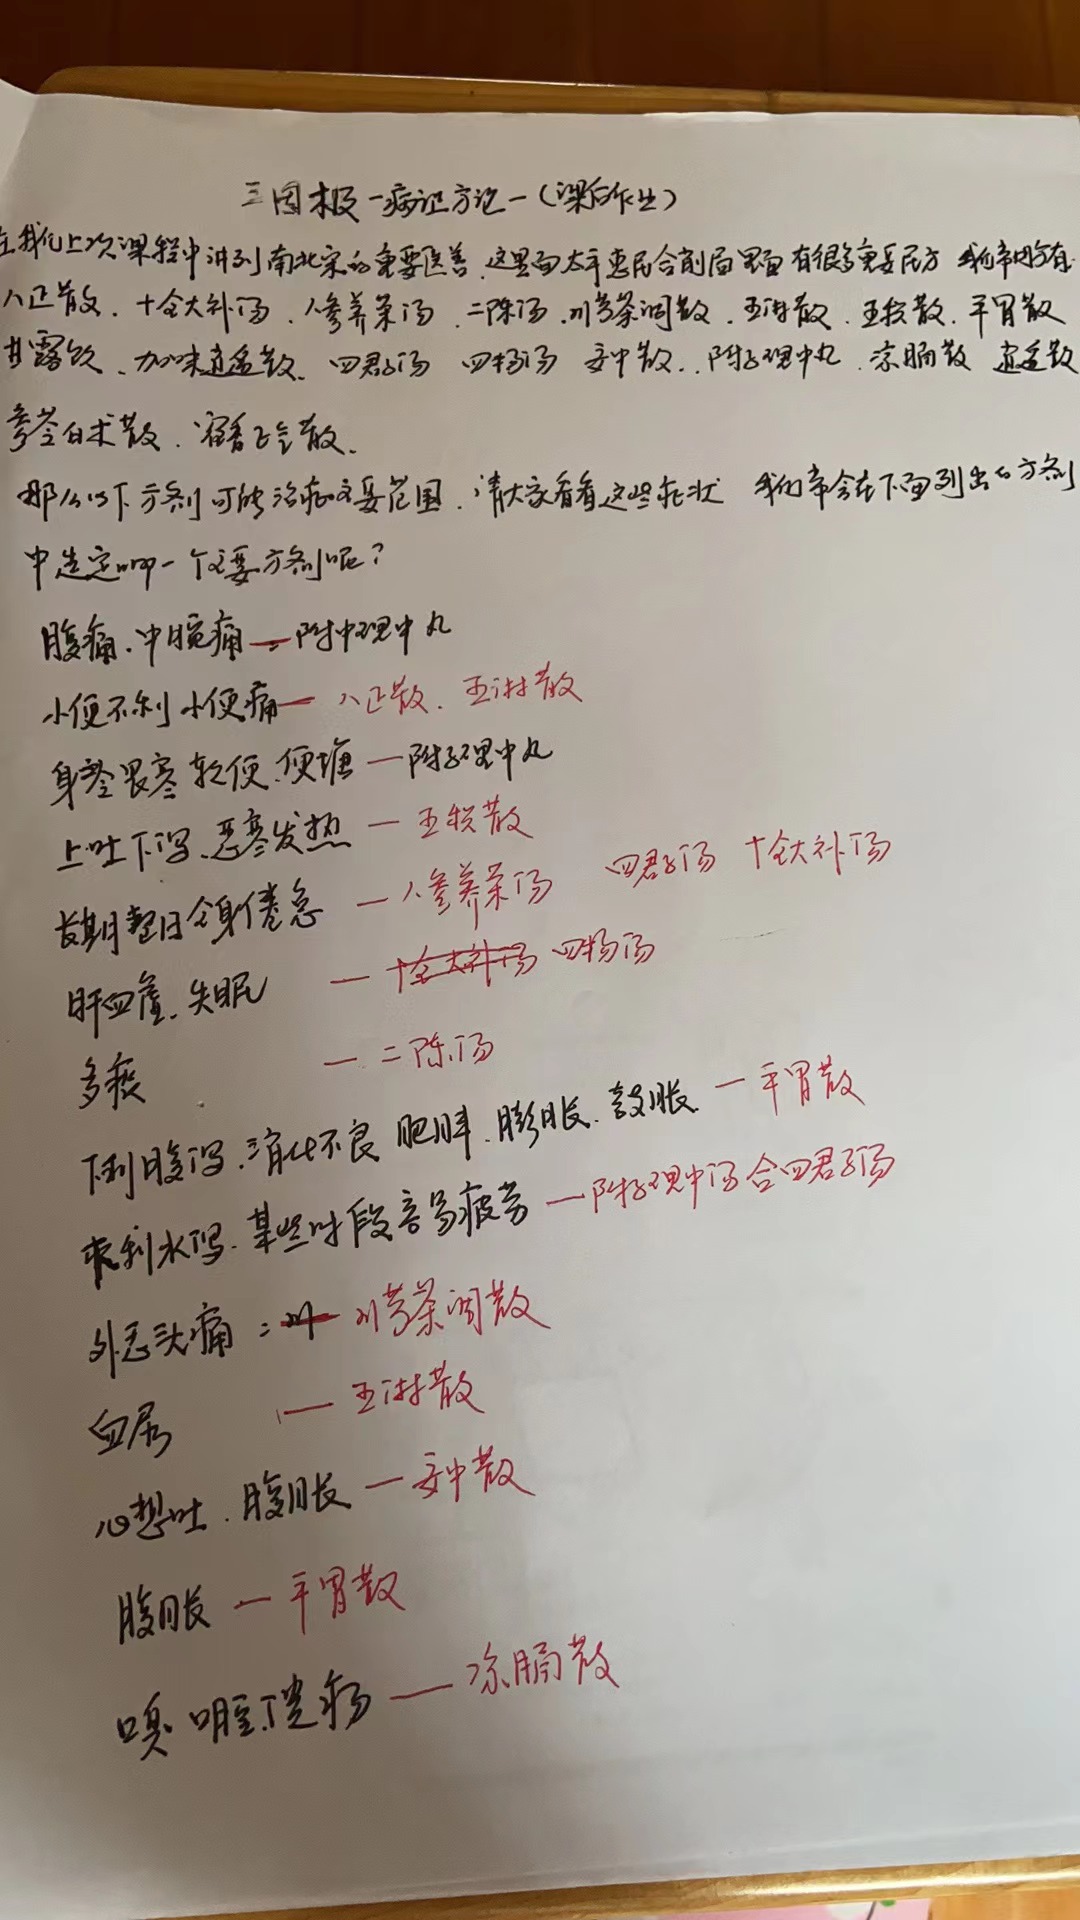 三因极一病证方论一(课后作业)
在我们上次课程中讲到南北宋的重要医著,这里面太平惠民合剂局里面有很多重要民方 我们常用方有:
八正散、十全大补汤、人参养荣汤、二陈汤、川芎茶调散、五淋散、五积散、平胃散
甘露饮、加味逍遥散、四君子汤 四物汤 安中散、附子理中丸、凉膈散 逍遥散
参苓白术散、藿香正气散、
那么以下方剂可能治病主要范围,请大家看看这些症状 我们常会在下面列出的方剂
中选定哪一个主要方剂呢?
腹痛、中脘痛——附中理中丸
小便不利 小便痛——八正散、五淋散
身寒畏寒 软便、便溏——附子理中丸
上吐下泻、恶寒发热——五积散
长期整日全身倦怠——人参养荣汤 四君子汤 十全大补汤
肝血虚、失眠——十全大补汤 四物汤
多痰——二陈汤
下利腹泻、消化不良 肥胖、膨胀、鼓胀——平胃散
下利水泻、某些时段容易疲劳——附子理中汤合四君子汤
外感头痛:川——川芎茶调散
血尿——五淋散
心想吐、腹胀——安中散
腹胀——平胃散
口臭 口腔溃疡——凉膈散